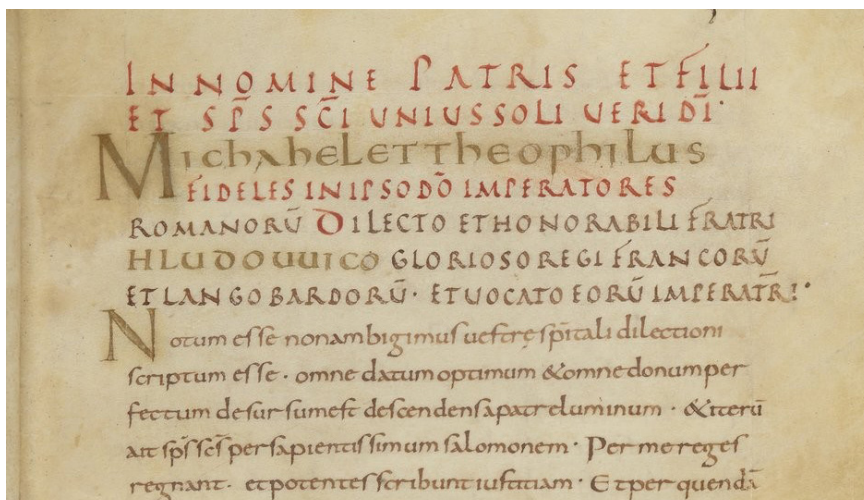 IN NOMINE PATRIS ET FILII
ET SP̄S SC̄I UNIUS SOLI UERI DĪ·
MICHAHEL ET THEOPHILUS
FIDELES IN IPSO DŌ IMPERATORES
ROMANORŪ DILECTO ET HONORABILI FRATRI
HLUDOUUICO GLORIOSO REGI FRANCORŪ
ET LANGOBARDORŪ· ET UOCATO EORŪ IMPERATR̄!·
Notum esse non ambigimus uestrę sp̄itali dilectioni
scriptum esse· omne datum optimum & omne donum per
fectum desursum est descendens a patre luminum· & iterū
ait sp̄s sc̄s per sapientissimum salomonem· Per me reges
regnant· et potentes scribunt iustitiam· Et per quendā